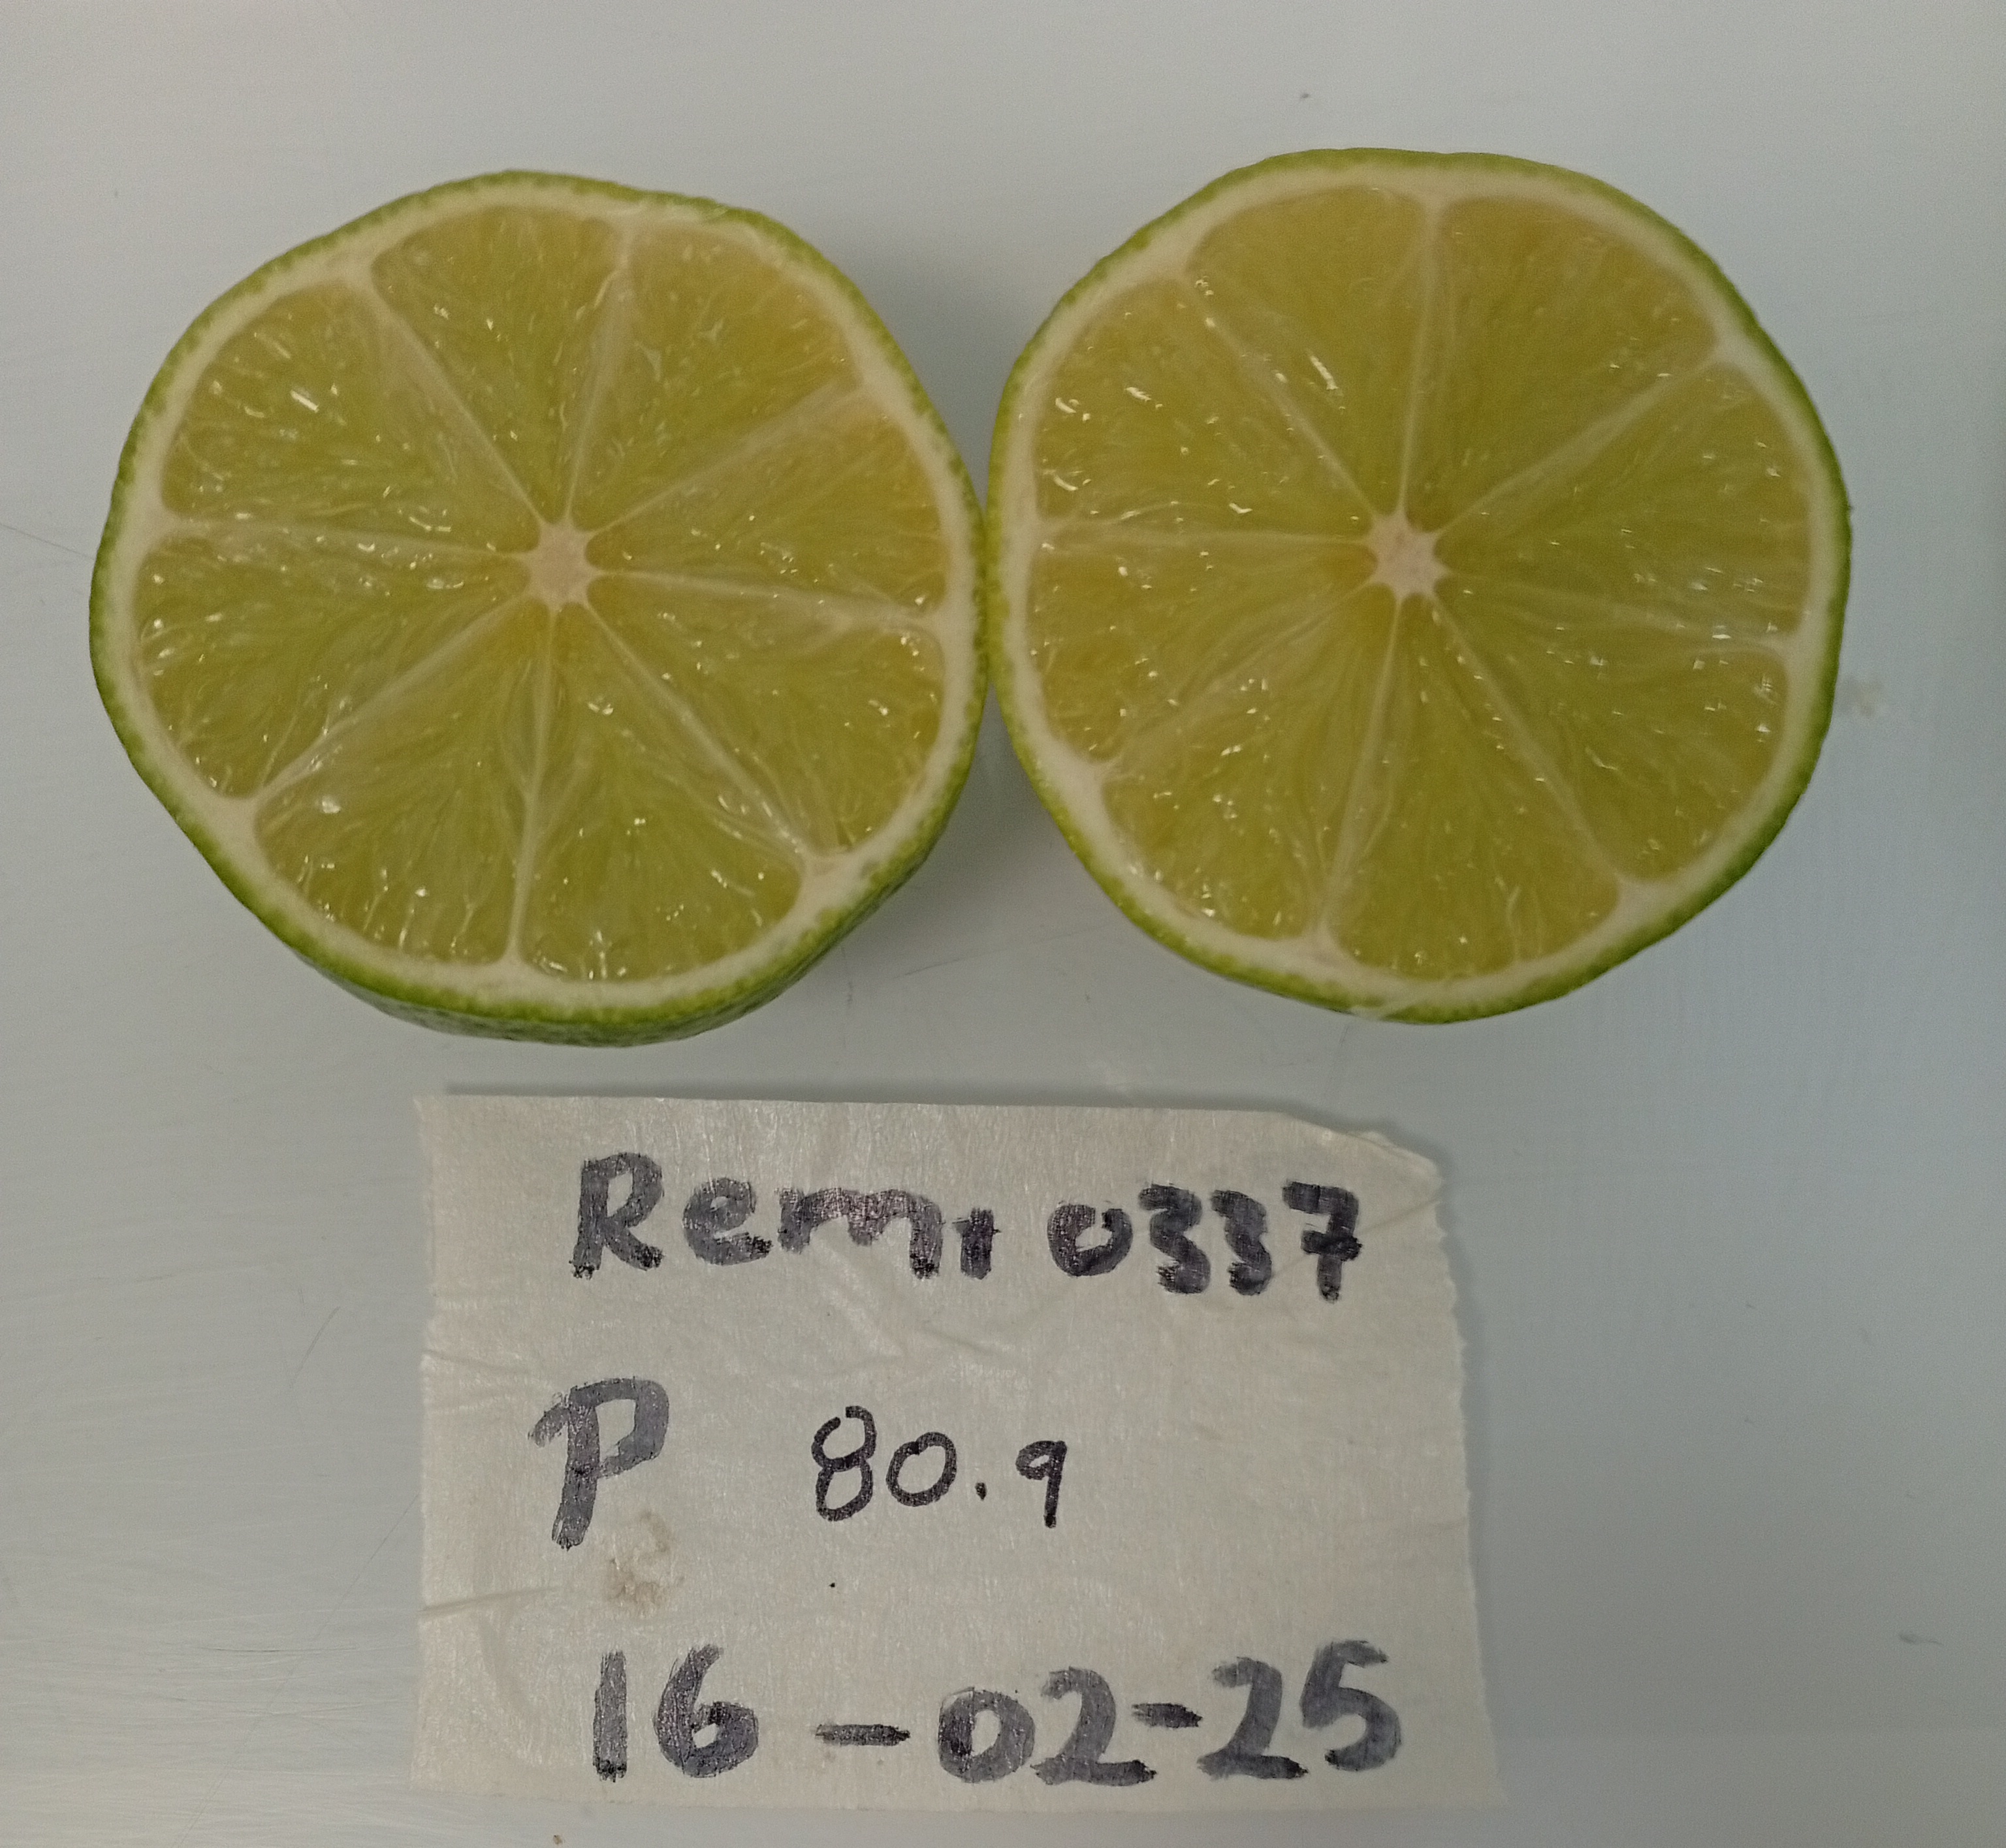 Remi 0337
P 80.9
16-02-25